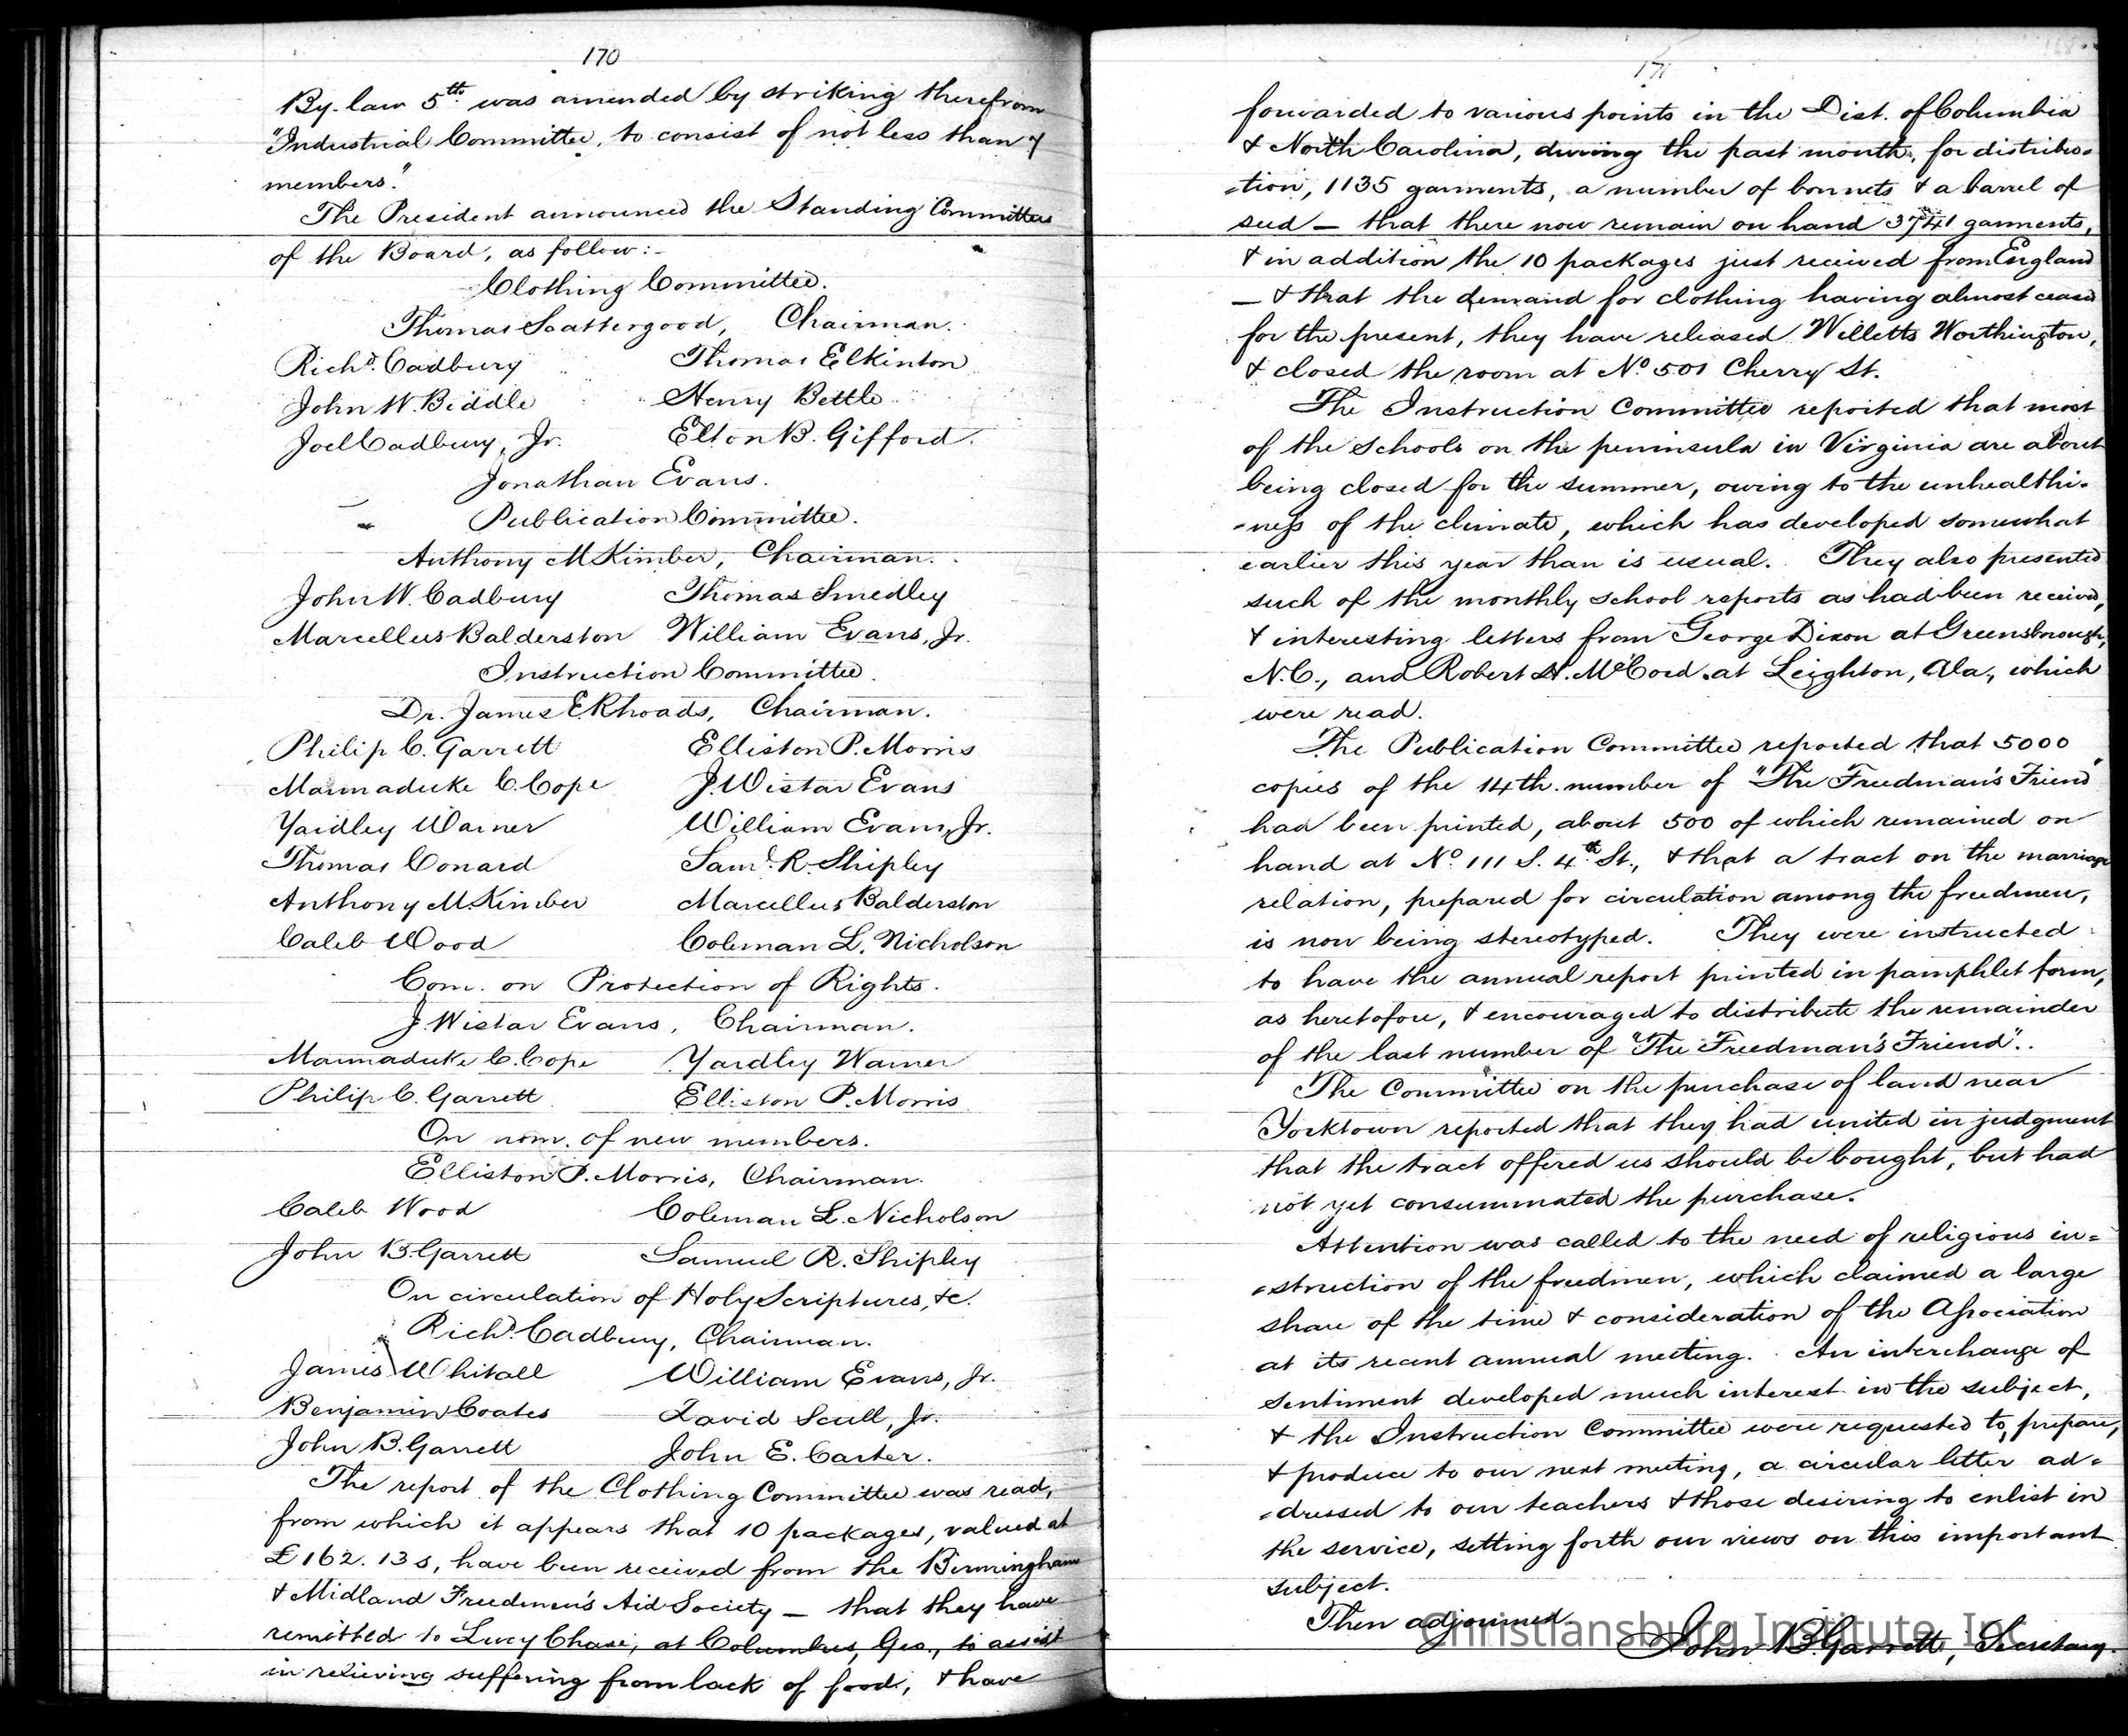 170
By-law 5th was amended by striking therefrom
"Industrial Committee, to consist of not less than 7
members."
The President announced the Standing Committees
of the Board, as follow:-
Clothing Committee.
Thomas Scattergood, Chairman.
Richd. Cadbury Thomas Elkinton
John W. Biddle Henry Bettle
Joel Cadbury, Jr. Elton B. Gifford.
Jonathan Evans.
Publication Committee.
Anthony M. Kimber, Chairman.
John W. Cadbury Thomas Smedley
Marcellus Balderston William Evans, Jr.
Instruction Committee.
Dr. James E. Rhoads, Chairman.
Philip C. Garrett Elliston P. Morris
Marmaduke C. Cope J. Wistar Evans
Yardley Warner William Evans, Jr.
Thomas Conard Saml. R. Shipley
Anthony M. Kimber Marcellus Balderston
Caleb Wood Coleman L. Nicholson
Com. on Protection of Rights.
J. Wistar Evans, Chairman.
Marmaduke C. Cope Yardley Warner
Philip C. Garrett Elliston P. Morris
On nom. of new members.
Elliston P. Morris, Chairman.
Caleb Wood Coleman L. Nicholson
John B. Garrett Samuel R. Shipley
On circulation of Holy Scriptures, &c.
Richd. Cadbury, Chairman.
James Whitall William Evans, Jr.
Benjamin Coates David Scull, Jr.
John B. Garrett John E. Carter.
The report of the Clothing Committee was read,
from which it appears that 10 packages, valued at
£162. 13s, have been received from the Birmingham
& Midland Freedmen's Aid Society — that they have
remitted to Lucy Chase, at Columbus, Geo., to assist
in relieving suffering from lack of food, & have
171
forwarded to various points in the Dist. of Columbia
& North Carolina, during the past month, for distribu-
-tion, 1135 garments, a number of bonnets & a barrel of
seed — that there now remain on hand 3741 garments,
& in addition the 10 packages just received from England
— & that the demand for clothing having almost ceased
for the present, they have released Willetts Worthington,
& closed the room at No. 501 Cherry St.
The Instruction Committee reported that most
of the schools on the peninsula in Virginia are about
being closed for the summer, owing to the unhealthi-
-ness of the climate, which has developed somewhat
earlier this year than is usual. They also presented
such of the monthly school reports as had been received,
& interesting letters from George Dixon at Greensborough,
N.C., and Robert H. McCord at Leighton, Ala., which
were read.
The Publication Committee reported that 5000
copies of the 14th. number of "The Freedman's Friend"
had been printed, about 500 of which remained on
hand at No. 111 S. 4th St., & that a tract on the marriage
relation, prepared for circulation among the freedmen,
is now being stereotyped. They were instructed
to have the annual report printed in pamphlet form,
as heretofore, & encouraged to distribute the remainder
of the last number of "The Freedman's Friend".
The Committee on the purchase of land near
Yorktown reported that they had united in judgment
that the tract offered us should be bought, but had
not yet consummated the purchase.
Attention was called to the need of religious in=
=struction of the freedmen, which claimed a large
share of the time & consideration of the Association
at its recent annual meeting. An interchange of
sentiment developed much interest in the subject,
& the Instruction Committee were requested to prepare,
& produce to our next meeting, a circular letter ad=
=dressed to our teachers & those desiring to enlist in
the service, setting forth our views on this important
subject.
Then adjourned
John B. Garrett, Secretary.
Christiansburg Institute, Inc